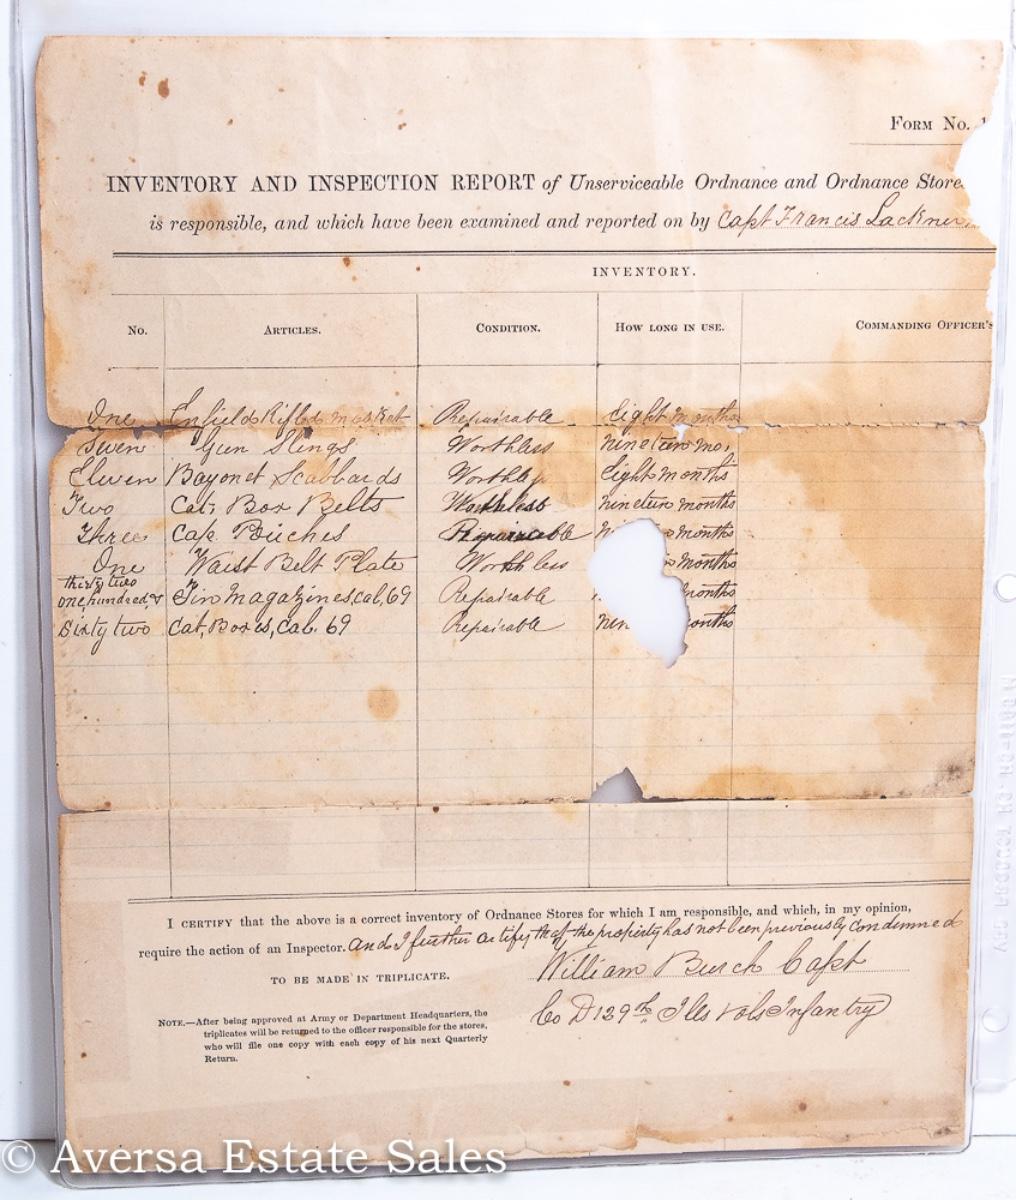 FORM No. 1
INVENTORY AND INSPECTION REPORT of Unserviceable Ordnance and Ordnance Store
is responsible, and which have been examined and reported on by Capt Francis Lackner,
INVENTORY.
No. ARTICLES. CONDITION. HOW LONG IN USE. COMMANDING OFFICER'S
One Enfield Rifled Musket Repairable Eight months
Seven Gun Slings Worthless nineteen mo,
Eleven Bayonet Scabbards Worthless Eight months
Two Cat, Box Belts Worthless nineteen months
Three Cap Pouches Repairable months
One Waist Belt Plate Worthless months
thirty two
one,hundred,& Tin Magazines,cal,69 Repairable months
Sixty two Cat,Boxes,Cal. 69 Repairable nin onths
I CERTIFY that the above is a correct inventory of Ordnance Stores for which I am responsible, and which, in my opinion,
require the action of an Inspector. and I further certify that the property has not been previously condemned
TO BE MADE IN TRIPLICATE.
William Burch Capt
Co D 129th Ills Vols Infantry
NOTE.—After being approved at Army or Department Headquarters, the
triplicates will be returned to the officer responsible for the stores,
who will file one copy with each copy of his next Quarterly
Return.
© Aversa Estate Sales